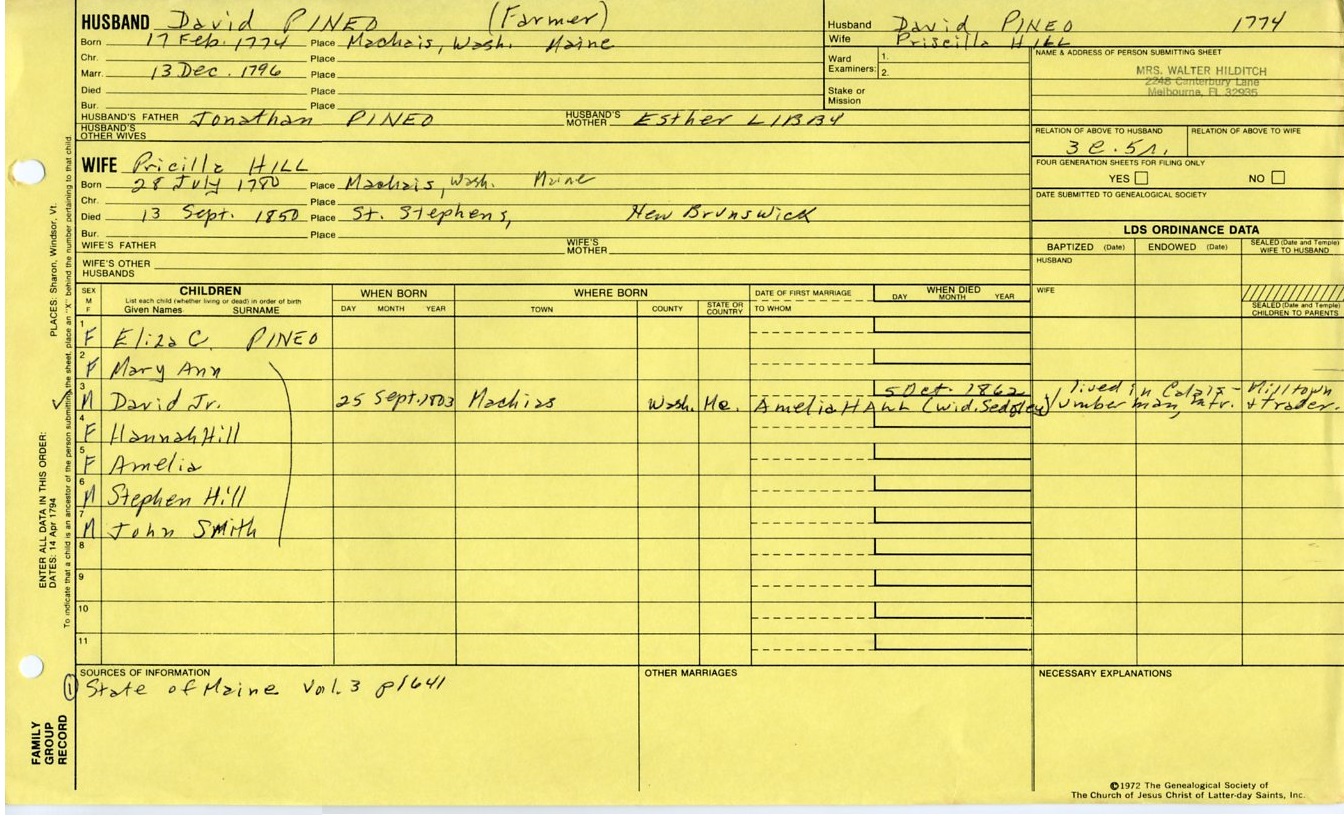 HUSBAND David PINEO (Farmer)
Born 17 Feb. 1774 Place Machais, Wash. Maine
Chr. Place
Marr. 13 Dec. 1796 Place
Died Place
Bur. Place
HUSBAND'S FATHER Jonathan PINEO HUSBAND'S MOTHER Esther LIBBY
HUSBAND'S OTHER WIVES
Husband David PINEO 1774
Wife Priscilla HILL
Ward Examiners: 1. 2.
Stake or Mission
NAME & ADDRESS OF PERSON SUBMITTING SHEET
MRS. WALTER HILDITCH
2248 Canterbury Lane
Melbourne, FL 32935
RELATION OF ABOVE TO HUSBAND RELATION OF ABOVE TO WIFE
3c.5r.
FOUR GENERATION SHEETS FOR FILING ONLY
YES NO
DATE SUBMITTED TO GENEALOGICAL SOCIETY
WIFE Pricilla HILL
Born 28 July 1780 Place Machais, Wash. Maine
Chr. Place
Died 13 Sept. 1850 Place St. Stephens, New Brunswick
Bur. Place
WIFE'S FATHER WIFE'S MOTHER
WIFE'S OTHER HUSBANDS
LDS ORDINANCE DATA
BAPTIZED (Date) ENDOWED (Date) SEALED (Date and Temple) WIFE TO HUSBAND
HUSBAND
WIFE
SEALED (Date and Temple) CHILDREN TO PARENTS
SEX M F CHILDREN List each child (whether living or dead) in order of birth Given Names SURNAME
WHEN BORN DAY MONTH YEAR
WHERE BORN TOWN COUNTY STATE OR COUNTRY
DATE OF FIRST MARRIAGE TO WHOM
WHEN DIED DAY MONTH YEAR
1 F Eliza C. PINEO
2 F Mary Ann
3 M David Jr. 25 Sept. 1803 Machias Wash. Me. Amelia HALL (wid. Sedgley) 5 Oct. 1862 lived in Calais - Milltown
lumberman, mfr. & trader.
4 F Hannah Hill
5 F Amelia
6 M Stephen Hill
7 M John Smith
8
9
10
11
SOURCES OF INFORMATION
1 State of Maine Vol. 3 p1641
OTHER MARRIAGES
NECESSARY EXPLANATIONS
©1972 The Genealogical Society of
The Church of Jesus Christ of Latter-day Saints, Inc.
FAMILY GROUP RECORD
ENTER ALL DATA IN THIS ORDER:
DATES: 14 Apr 1794
PLACES: Sharon, Windsor, Vt.
To indicate that a child is an ancestor of the person submitting the sheet, place an "X" behind the number pertaining to that child.